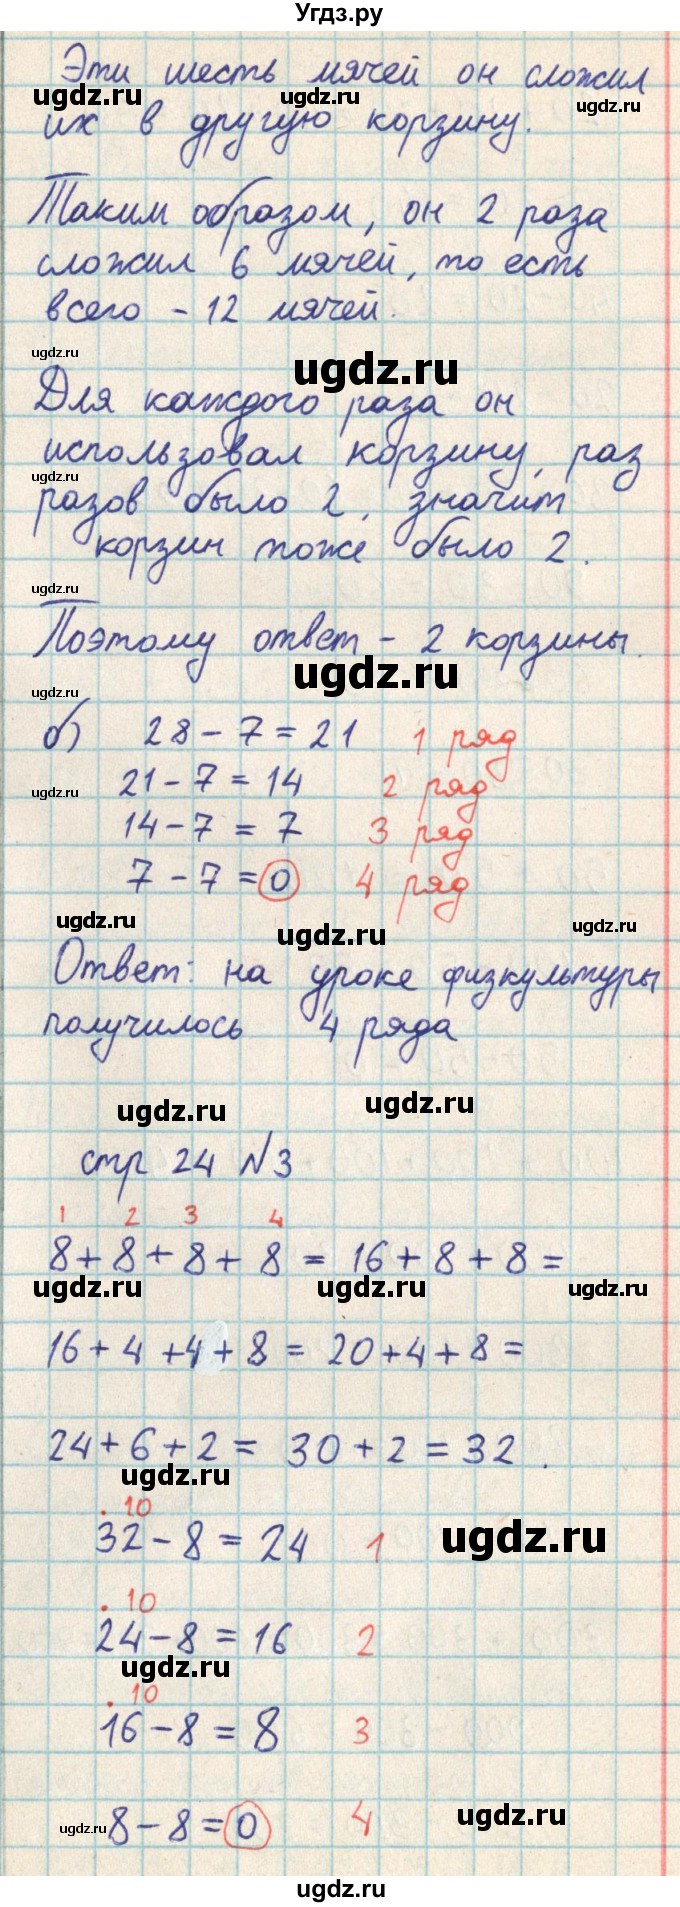 Угдз.ру
Эти шесть мячей он сложил
их в другую корзину.
Таким образом, он 2 раза
сложил 6 мячей, то есть
всего - 12 мячей.
Для каждого раза он
использовал корзину, раз
разов было 2, значит
корзин тоже было 2.
Поэтому ответ - 2 корзины.
б) 28 - 7 = 21 1 ряд
21 - 7 = 14 2 ряд
14 - 7 = 7 3 ряд
7 - 7 = 0 4 ряд
Ответ: на уроке физкультуры
получилось 4 ряда
стр 24 N3
1 2 3 4
8 + 8 + 8 + 8 = 16 + 8 + 8 =
16 + 4 + 4 + 8 = 20 + 4 + 8 =
24 + 6 + 2 = 30 + 2 = 32.
. 10
32 - 8 = 24 1
. 10
24 - 8 = 16 2
. 10
16 - 8 = 8 3
8 - 8 = 0 4
ugdz.ru